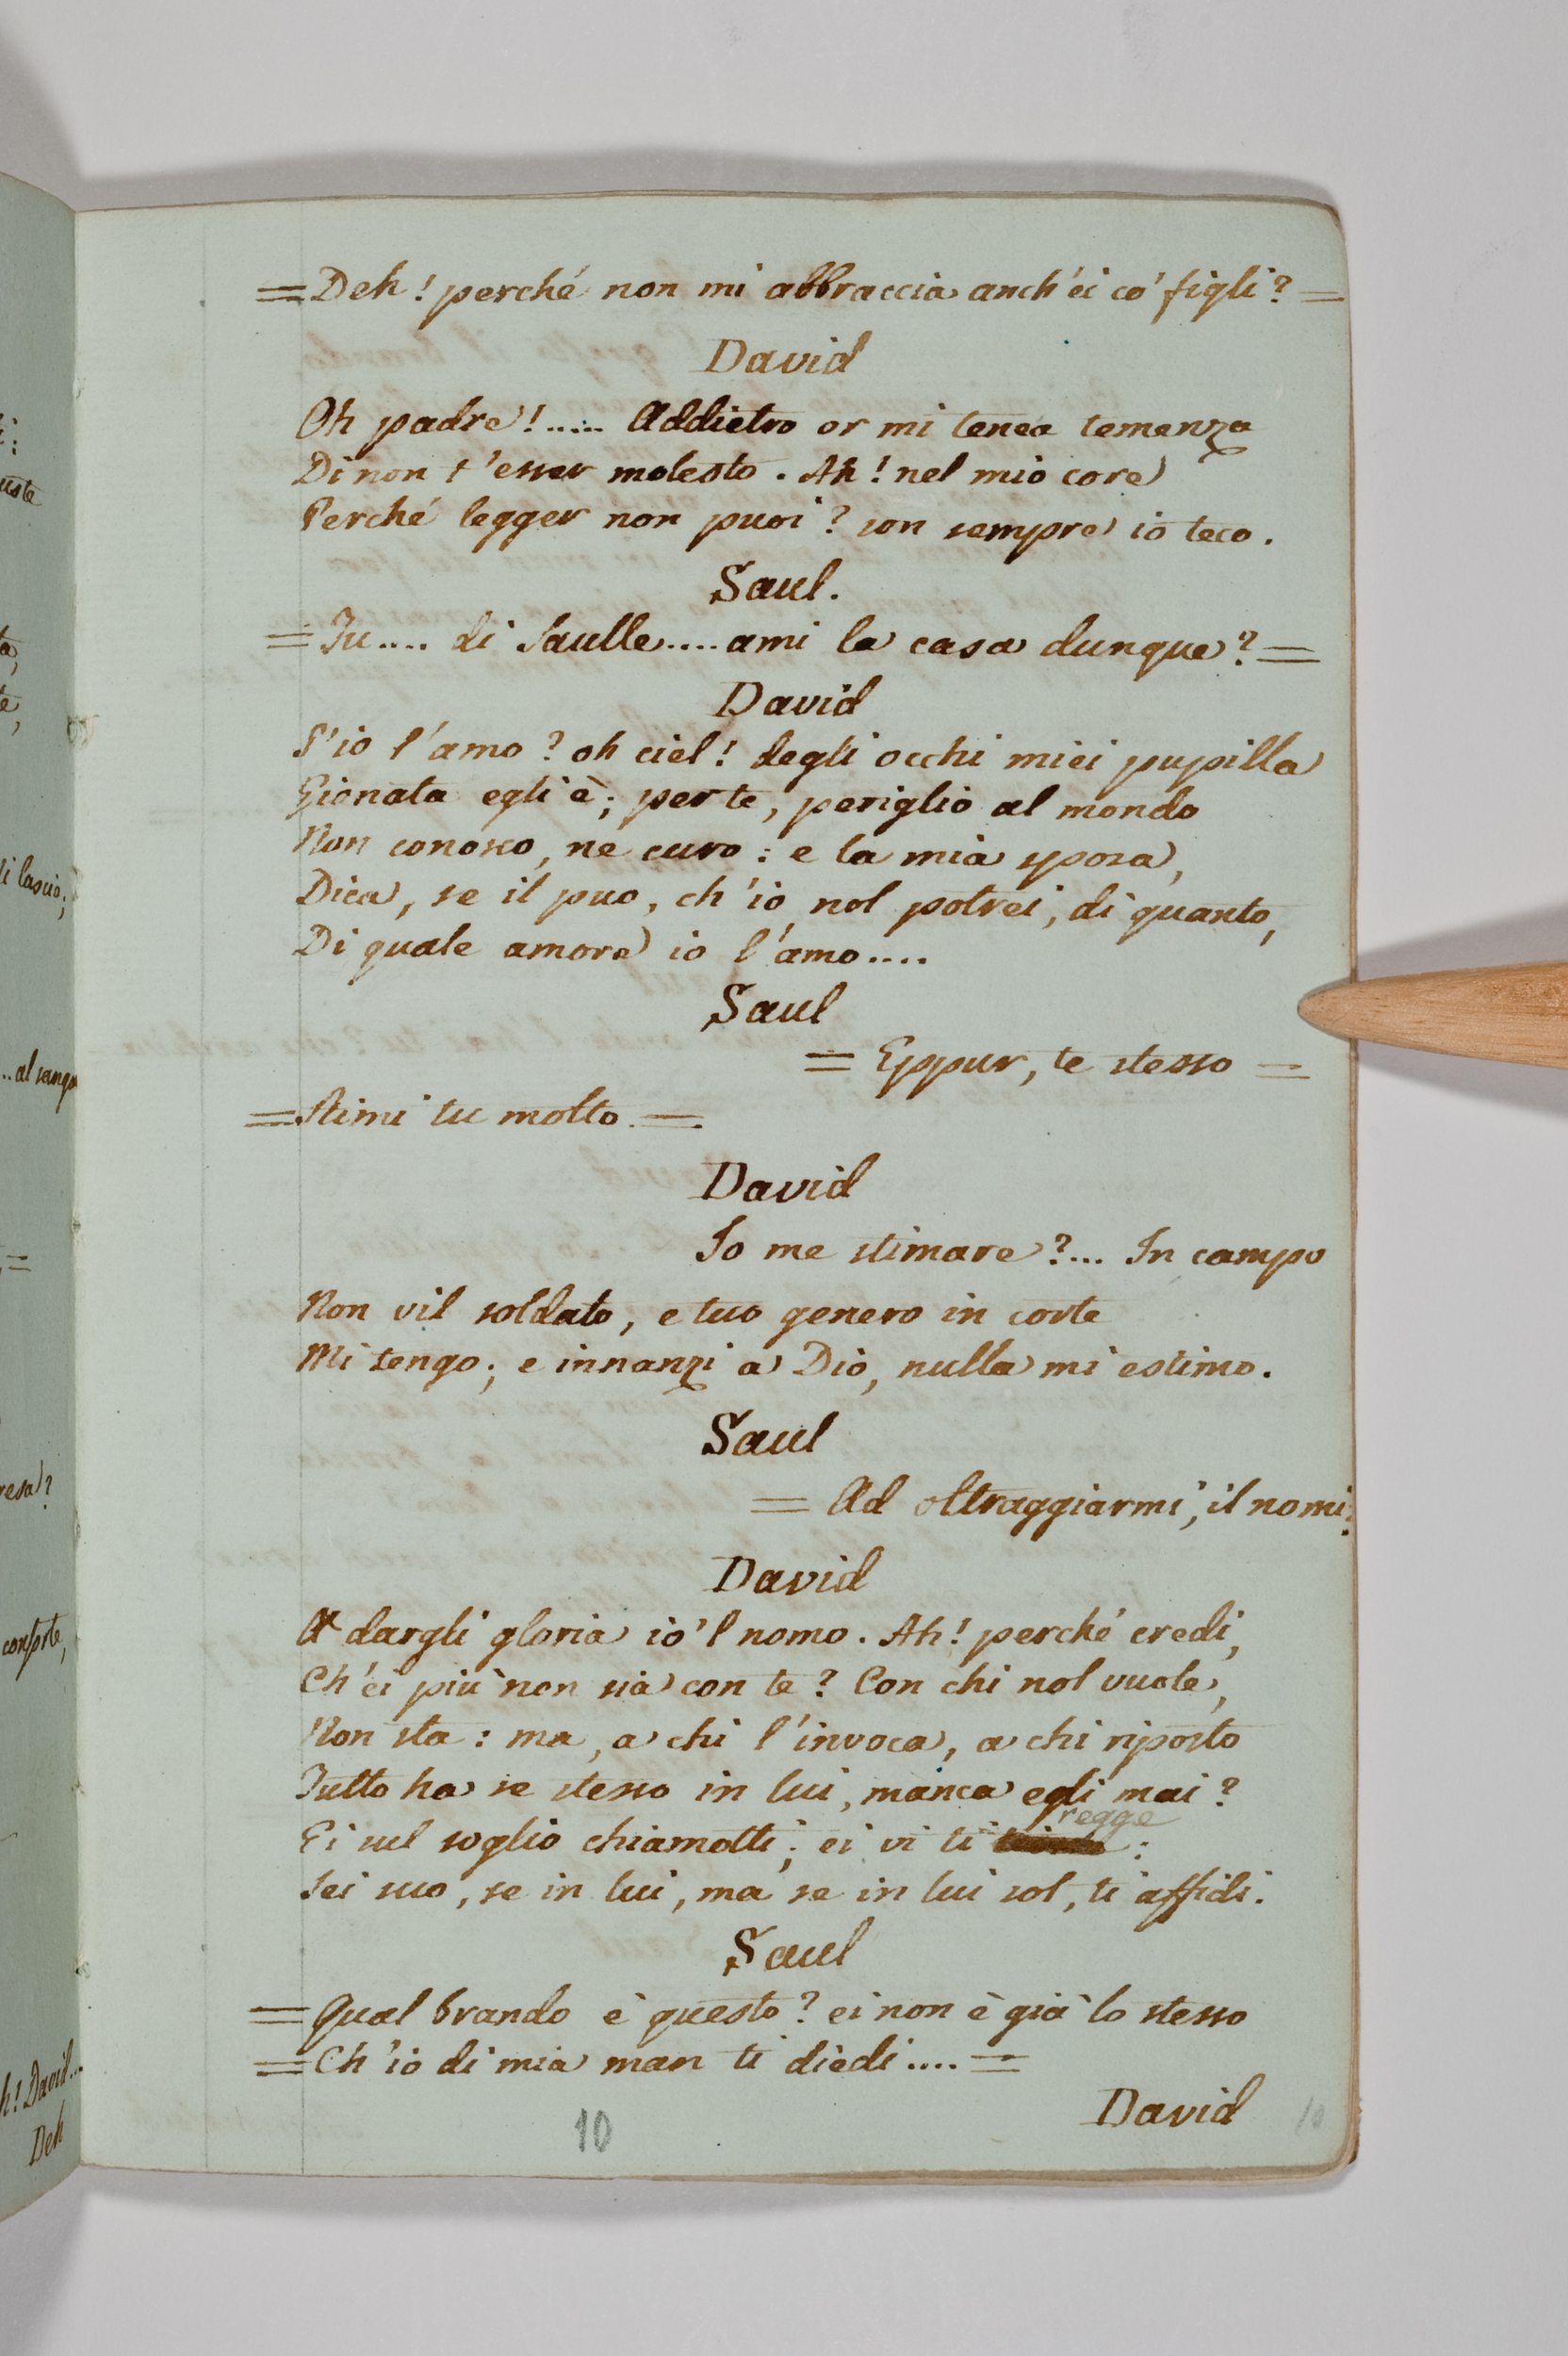 = Deh! perché non mi abbraccia anch'ei co' figli? =
David
Oh padre!..... Addietro or mi tenea temenza
Di non t'esser molesto. Ah! nel mio core
Perché legger non puoi? son sempre io teco.
Saul.
= Tu.... di Saulle.... ami la casa dunque? =
David
S'io l'amo? oh ciel! degli occhi miei pupilla
Gionata egli è; per te, periglio al mondo
Non conosco, ne curo: e la mia sposa,
Dica, se il puo, ch'io nol potrei, di quanto,
Di quale amore io l'amo....
Saul
= Eppur, te stesso =
= Stimi tu molto. =
David
Io me stimare?... In campo
Non vil soldato, e tuo genero in corte
Mi tengo; e innanzi a Dio, nulla mi estimo.
Saul
= Ad oltraggiarmi, il nomi.
David
A dargli gloria io'l nomo. Ah! perché credi,
Ch'ei più non sia con te? Con chi nol vuole,
Non sta: ma, a chi l'invoca, a chi riposto
Tutto ha se stesso in lui, manca egli mai?
regge
Ei sul soglio chiamotti; ei vi ti :
Sei suo, se in lui, ma se in lui sol, ti affidi.
Saul
= Qual brando è questo? ei non è già lo stesso
= Ch'io di mia man ti diedi.... =
David
10
10
uste
li lascio;
..al sangu
resa?
consorte,
h! David...
Deh